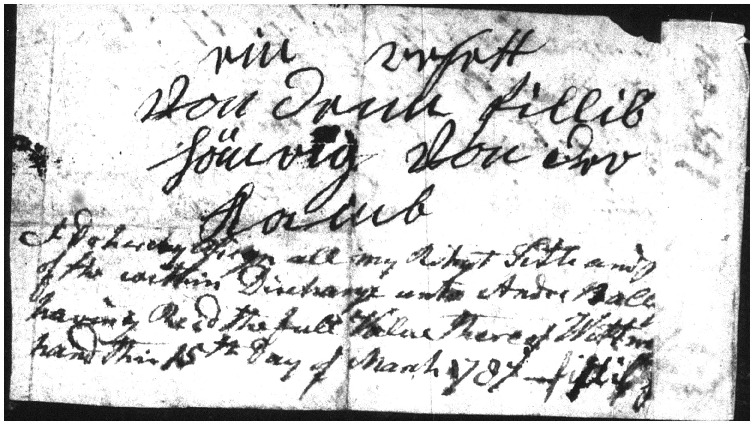 ein resett
Von denn fillib
Von der
I Do hereby asign all my Right Title and
of the within Discharge unto Andre Ball
having Recd the full Value thereof Witt my
hand this 15th Day of March 1787